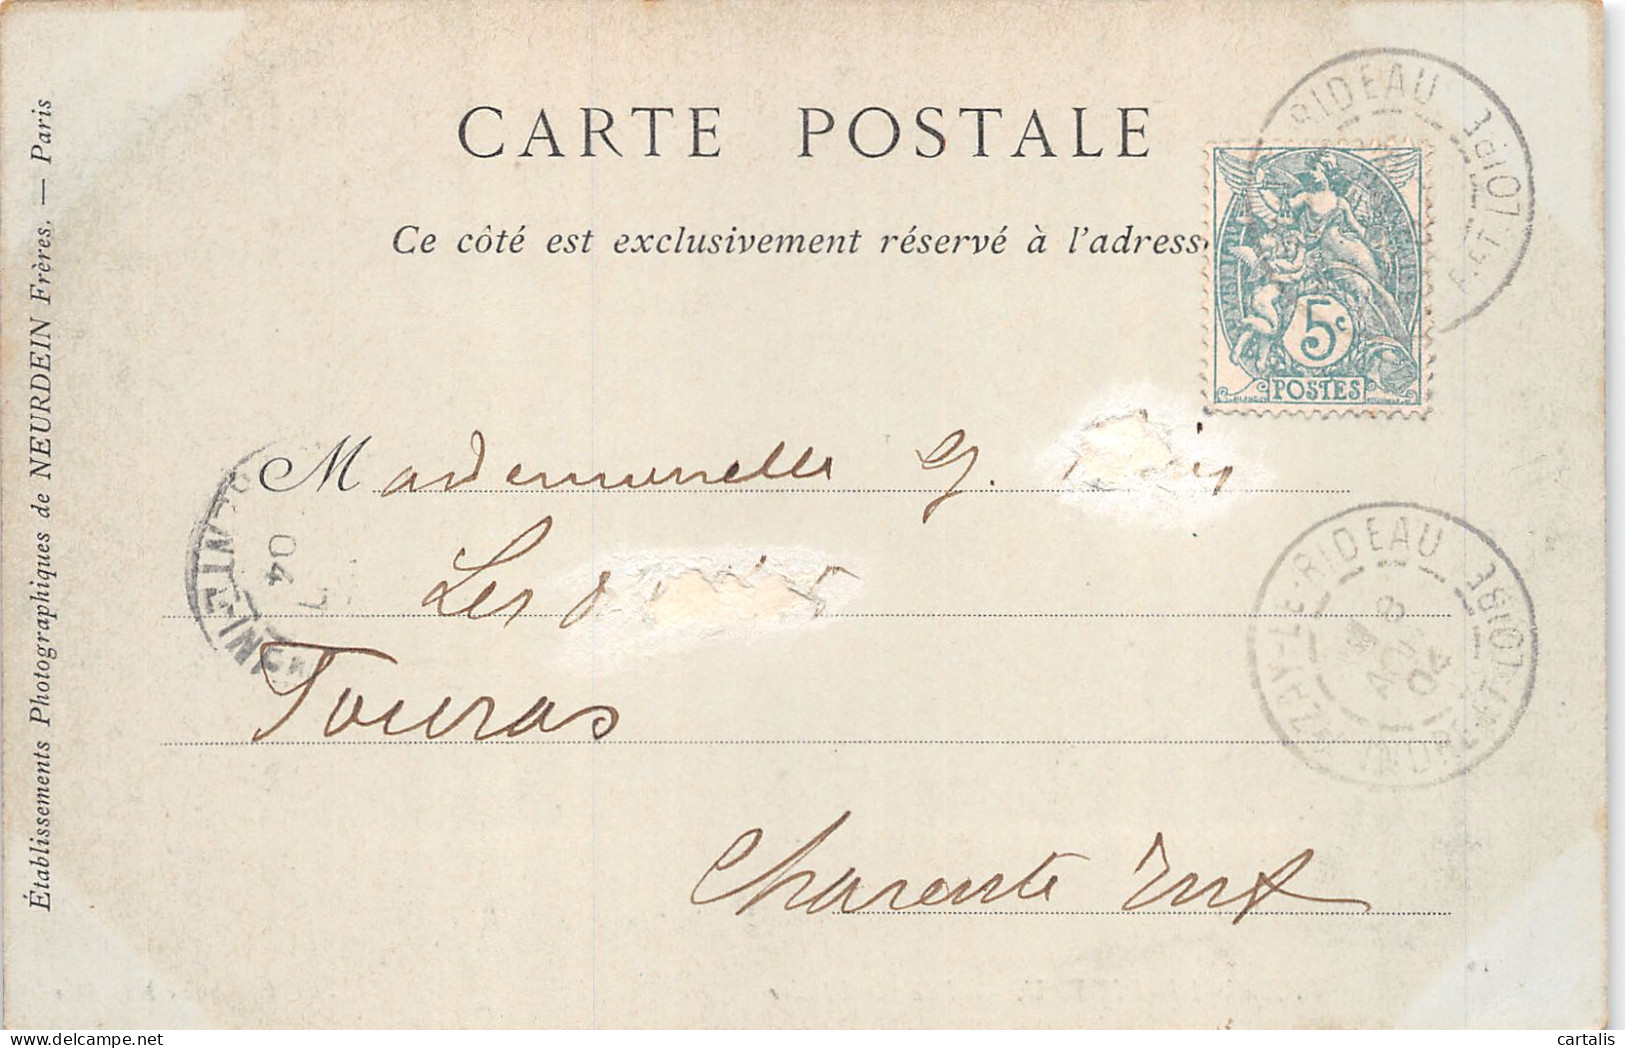 CARTE POSTALE
Ce côté est exclusivement réservé à l'adress
Établissements Photographiques de NEURDEIN Frères. — Paris
5c
POSTES
RIDEAU
LOIRE
ET
Mademoiselle G.
Les
Touras
Charente Inf
04
AZAY-LE-RIDEAU
8
04
INDRE-ET-LOIRE
delcampe.net
cartalis